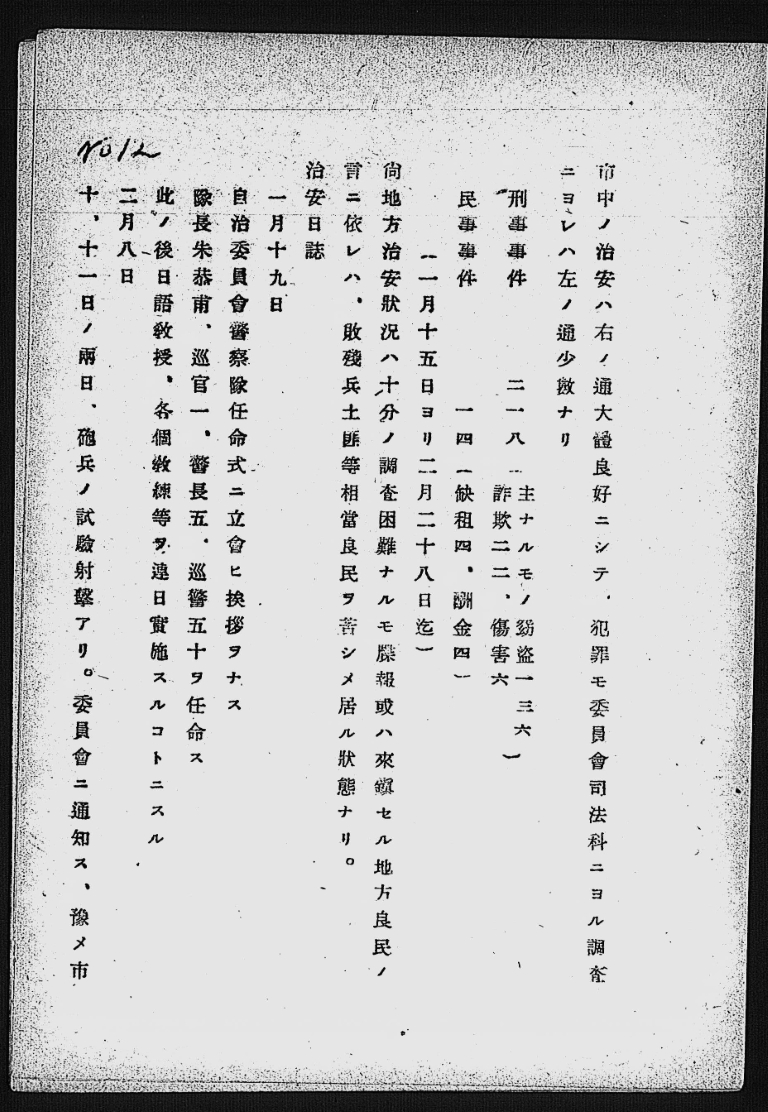 No 12
市中ノ治安ハ右ノ通大體良好ニシテ、犯罪モ委員會司法科ニヨル調査
ニヨレハ左ノ通少數ナリ
刑事事件 二一八 (主ナルモノ竊盜一三六
詐欺二二、傷害六)
民事事件 一四(缺租四、酬金四)
(一月十五日ヨリ二月二十八日迄)
尙地方治安狀況ハ十分ノ調査困難ナルモ諜報或ハ來鎭セル地方良民ノ
言ニ依レハ、敗殘兵土匪等相當良民ヲ苦シメ居ル狀態ナリ。
治安日誌
一月十九日
自治委員會警察隊任命式ニ立會ヒ挨拶ヲナス
隊長朱恭甫、巡官一、警長五、巡警五十ヲ任命ス
此ノ後日語敎授、各個敎練等ヲ連日實施スルコトニスル
二月八日
十、十一日ノ兩日、砲兵ノ試驗射擊アリ。委員會ニ通知ス、豫メ市